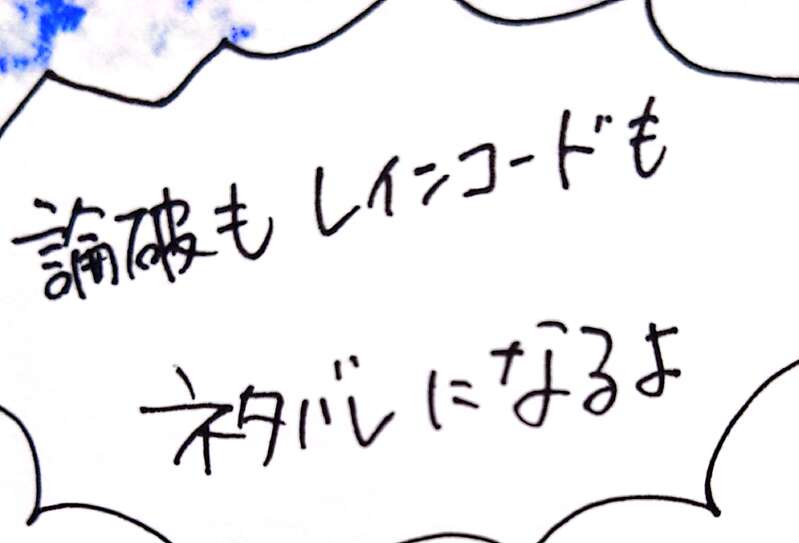 論破もレインコードも
ネタバレになるよ